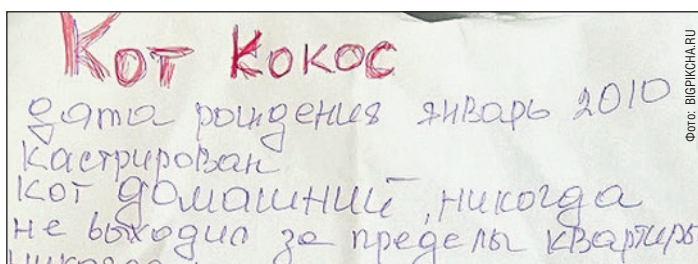 Кот Кокос
дата рождения январь 2010
кастрирован
кот домашний, никогда
не выходил за пределы квартиры
Фото: BIGPIKCHA.RU